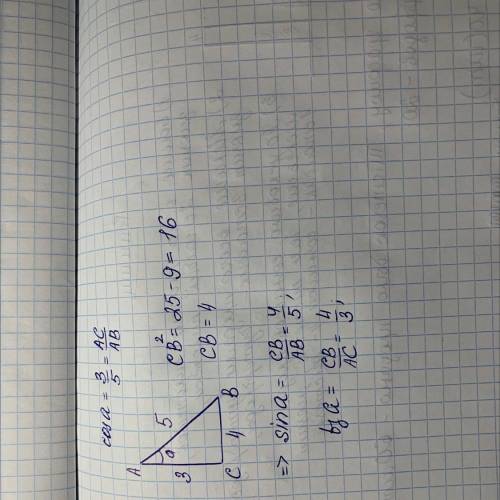 cos a = 3/5 = AC/AB
A
3
a
5
C
4
B
CB² = 25 - 9 = 16
CB = 4
=> sin a = CB/AB = 4/5;
tg a = CB/AC = 4/3;